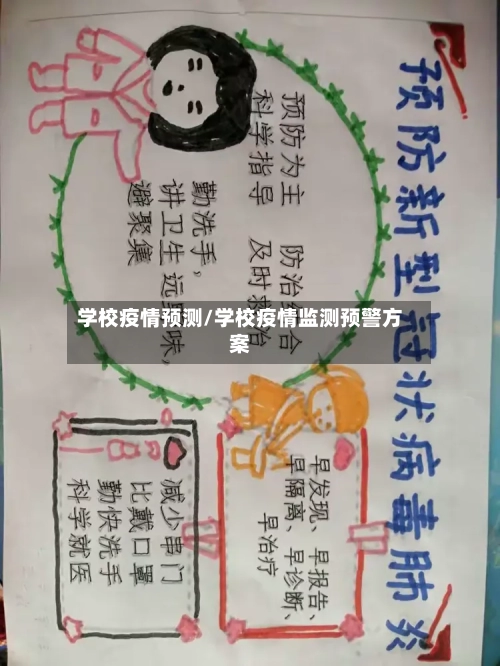 预防新型冠状病毒肺炎
预防为主 防治结合
科学指导 及时救治
勤洗手,
讲卫生远野味,
避聚集
学校疫情预测/学校疫情监测预警方
案
早发现、早报告、
早隔离、早诊断、
早治疗
减少串门
比戴口罩
勤快洗手
科学就医